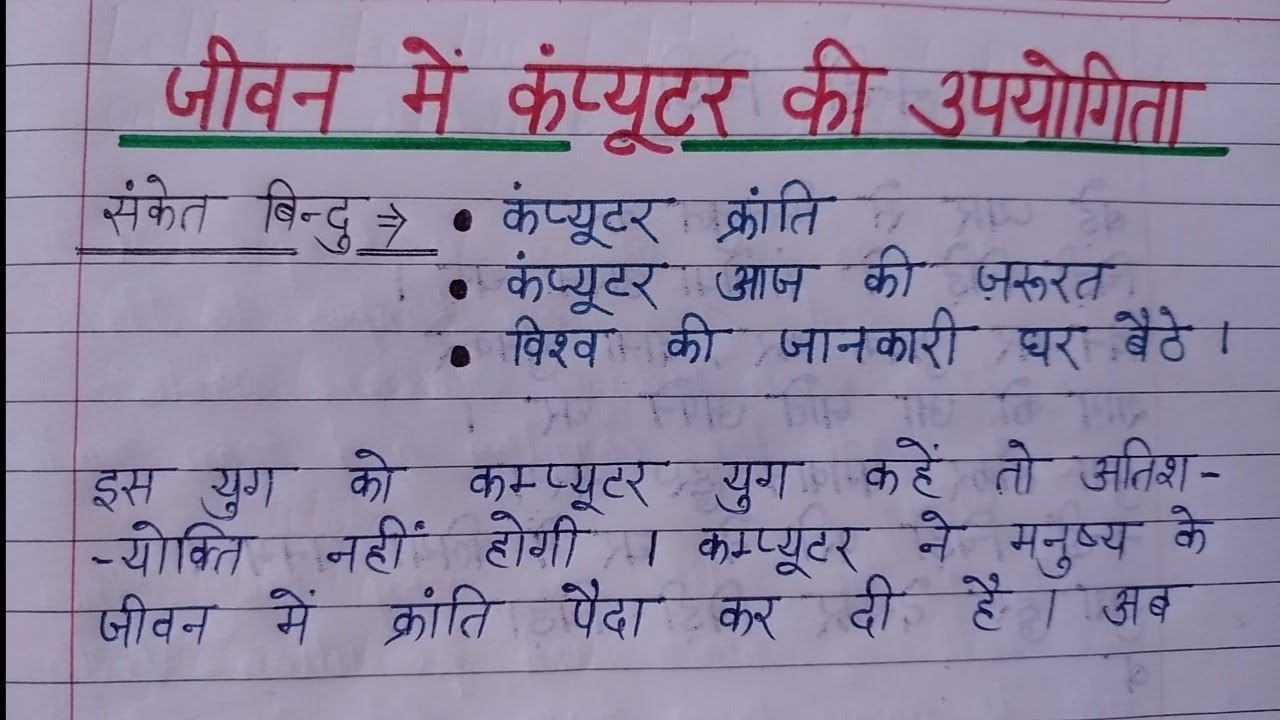 जीवन में कंप्यूटर की उपयोगिता
संकेत बिन्दु ⇒ • कंप्यूटर क्रांति
• कंप्यूटर आज की ज़रूरत
• विश्व की जानकारी घर बैठे ।
इस युग को कम्प्यूटर युग कहें तो अतिश-
-योक्ति नहीं होगी । कम्प्यूटर ने मनुष्य के
जीवन में क्रांति पैदा कर दी है । अब